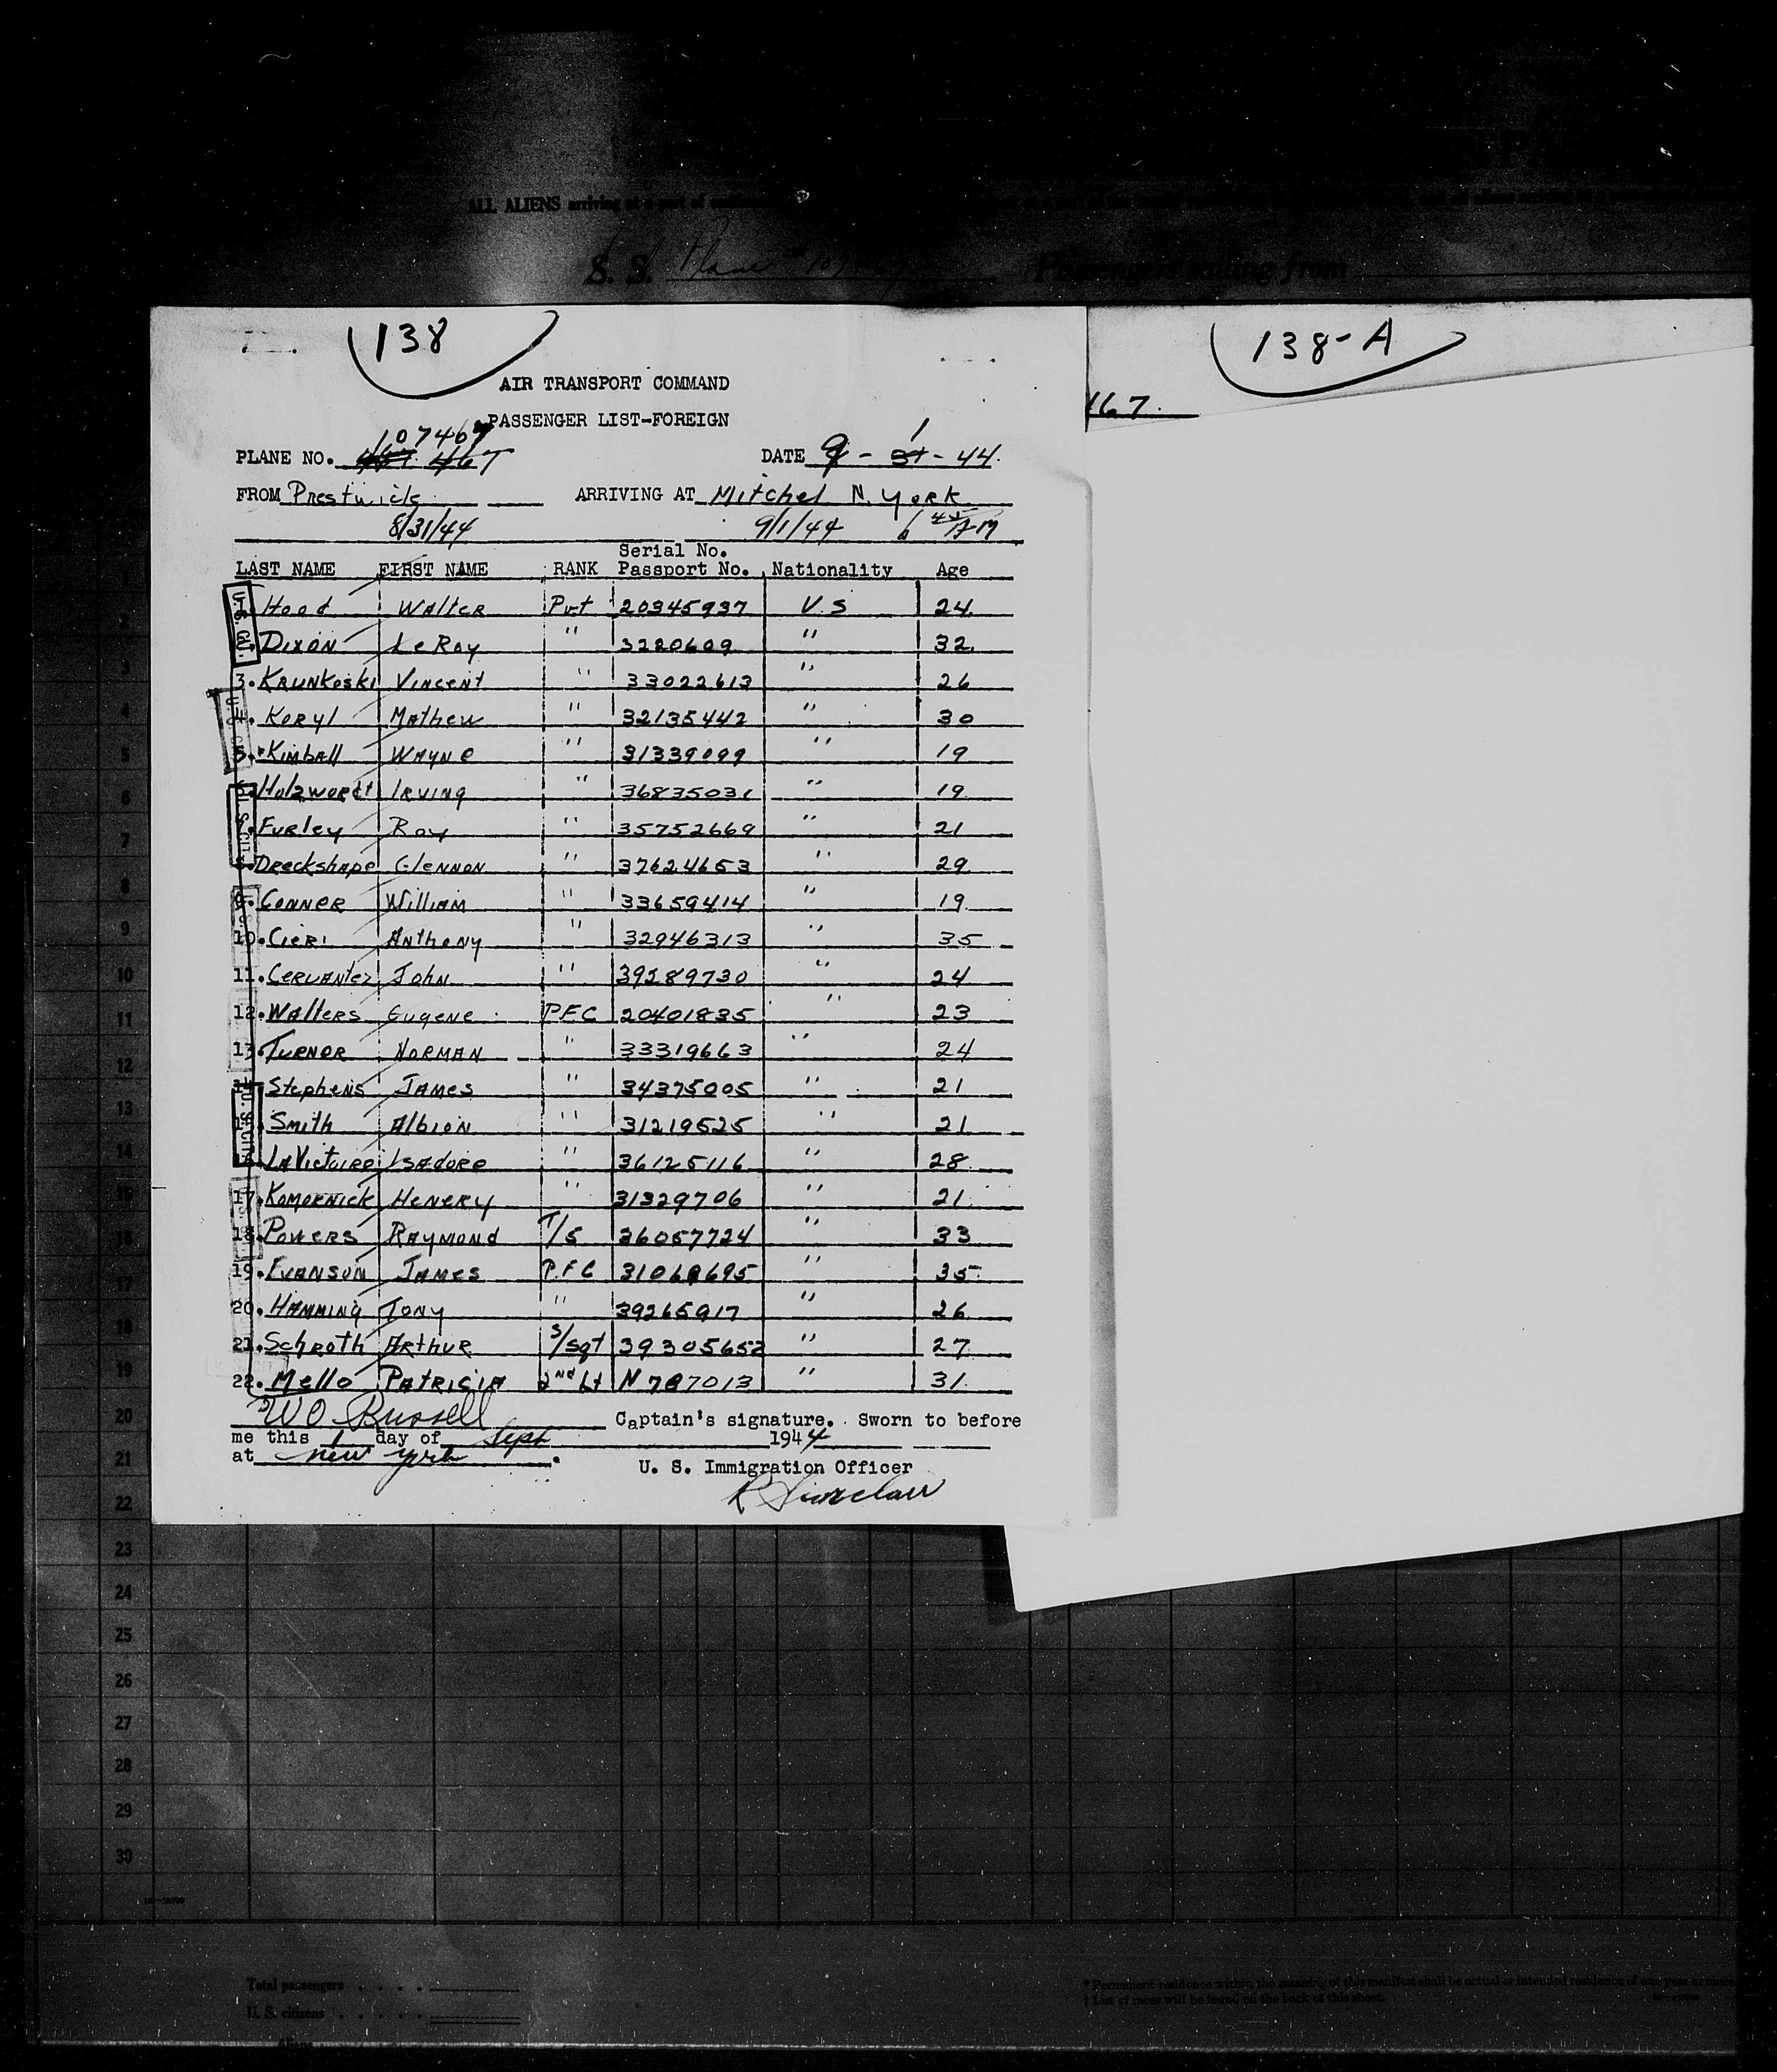 ALL ALIENS arriving at a port of
S. S. Plane # 107467 Passengers sailing from
138
138-A
167.
AIR TRANSPORT COMMAND
PASSENGER LIST-FOREIGN
107467
PLANE NO. 467 DATE 9 - 1 - 44.
FROM Prestwick ARRIVING AT Mitchel N. York
8/31/44 9/1/44 6 45 AM
Serial No.
LAST NAME FIRST NAME RANK Passport No. Nationality Age
Hood Walter Pvt 20345937 U.S 24
Dixon LeRoy " 3220609 " 32
3. Krunkoski Vincent " 33022613 " 26
4. Koryl Mathew " 32135442 " 30
5. Kimball Wayne " 31339099 " 19
6. Holzwordt Irving " 36835031 " 19
7. Furley Roy " 35752669 " 21
8. Dreckshape Glennon " 37624653 " 29
9. Conner William " 33659414 " 19
10. Cieri Anthony " 32946313 " 35
11. Cervantez John " 39289730 " 24
12. Walters Eugene PFC 20401835 " 23
13. Turnor Norman " 33319663 " 24
14. Stephens James " 34375005 " 21
15. Smith Albion " 31219525 " 21
16. LaVictoire Isadore " 36125116 " 28
17. Komornick Henery " 31329706 " 21
18. Powers Raymond T/5 36057724 " 33
19. Evanson James P.F.C 31068695 " 35
20. Hamming Tony " 39265917 " 26
21. Schroth Arthur S/Sgt 39305652 " 27
22. Mello Patricia 2nd Lt N 787013 " 31
W O Russell Captain's signature. Sworn to before
me this 1 day of Sept 1944
at New York.
U. S. Immigration Officer
R Sinclair
1
2
3
4
5
6
7
8
9
10
11
12
13
14
15
16
17
18
19
20
21
22
23
24
25
26
27
28
29
30
Total passengers . . . .
U. S. citizens . . . . .
* Permanent residence within the meaning of this manifest shall be actual or intended residence of one year or more.
† List of races will be found on the back of this sheet.